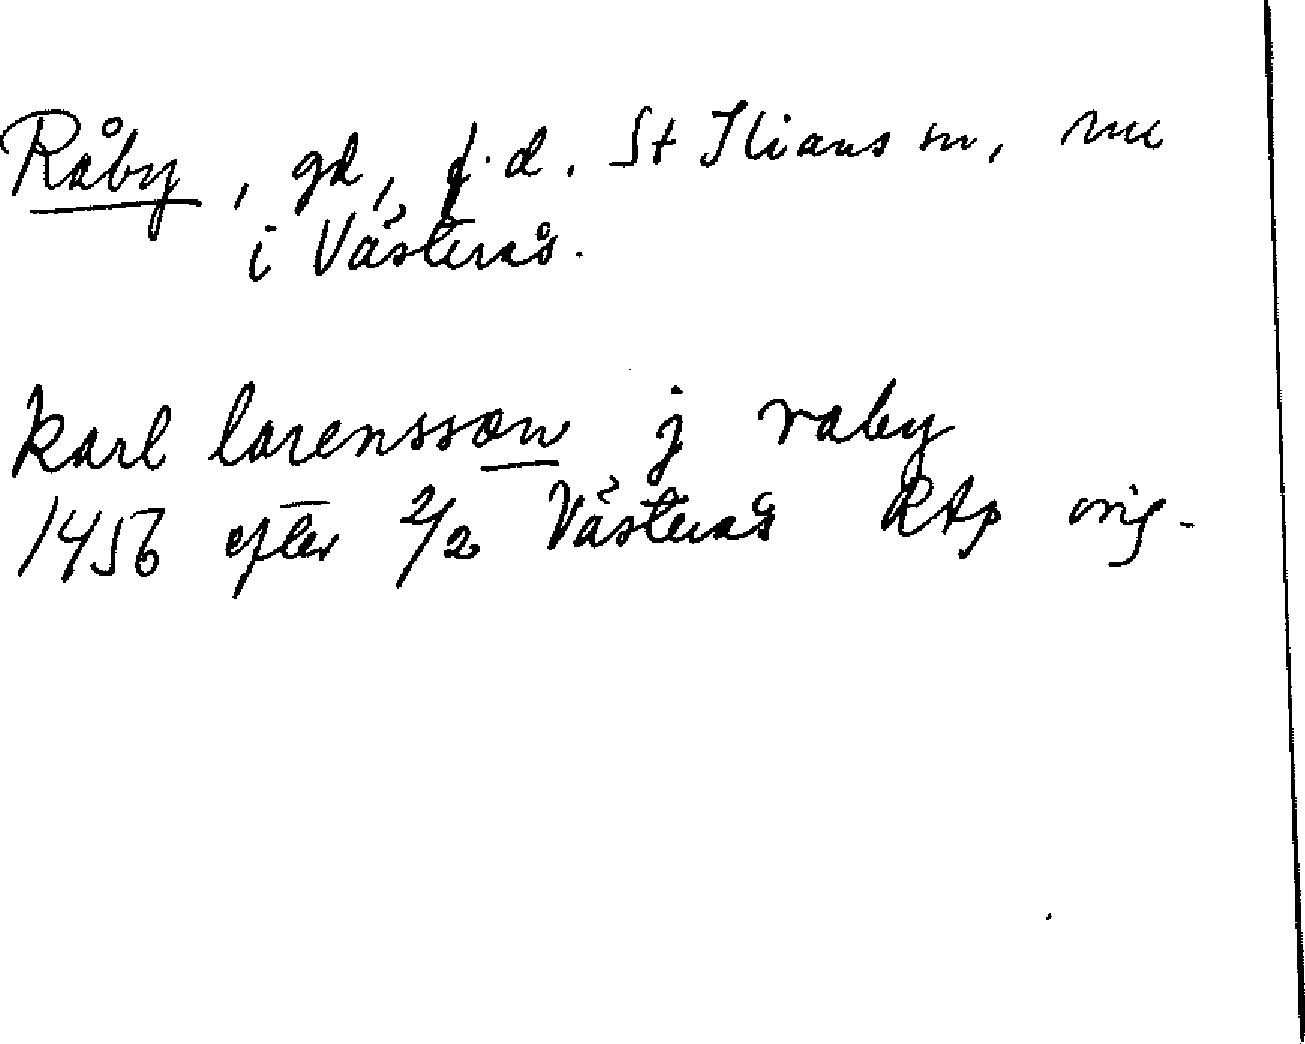 Råby, gd, f.d. St Ilians sn, nu
i Västerås.
karl larensson j raby
1456 efter 2/2 Västerås RAp orig.